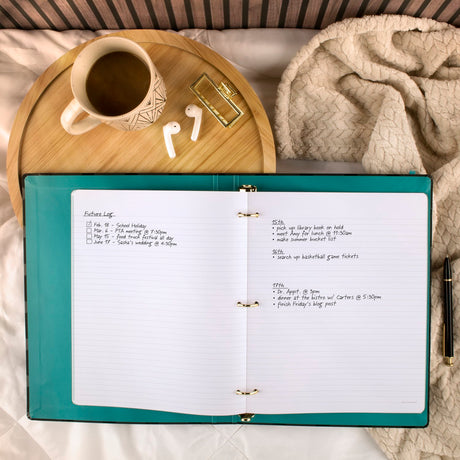 Future Log
Feb. 18 - School Holiday
Mar. 6 - PTA meeting @ 7:30pm
May 15 - food truck festival all day
June 17 - Sasha's wedding @ 4:30pm
15th
• pick up library book on hold
• meet Amy for lunch @ 11:30am
• make summer bucket list
16th
• search up basketball game tickets
17th
• Dr. Appt. @ 1pm
• dinner at the bistro w/ Carters @ 5:30pm
• finish Friday's blog post